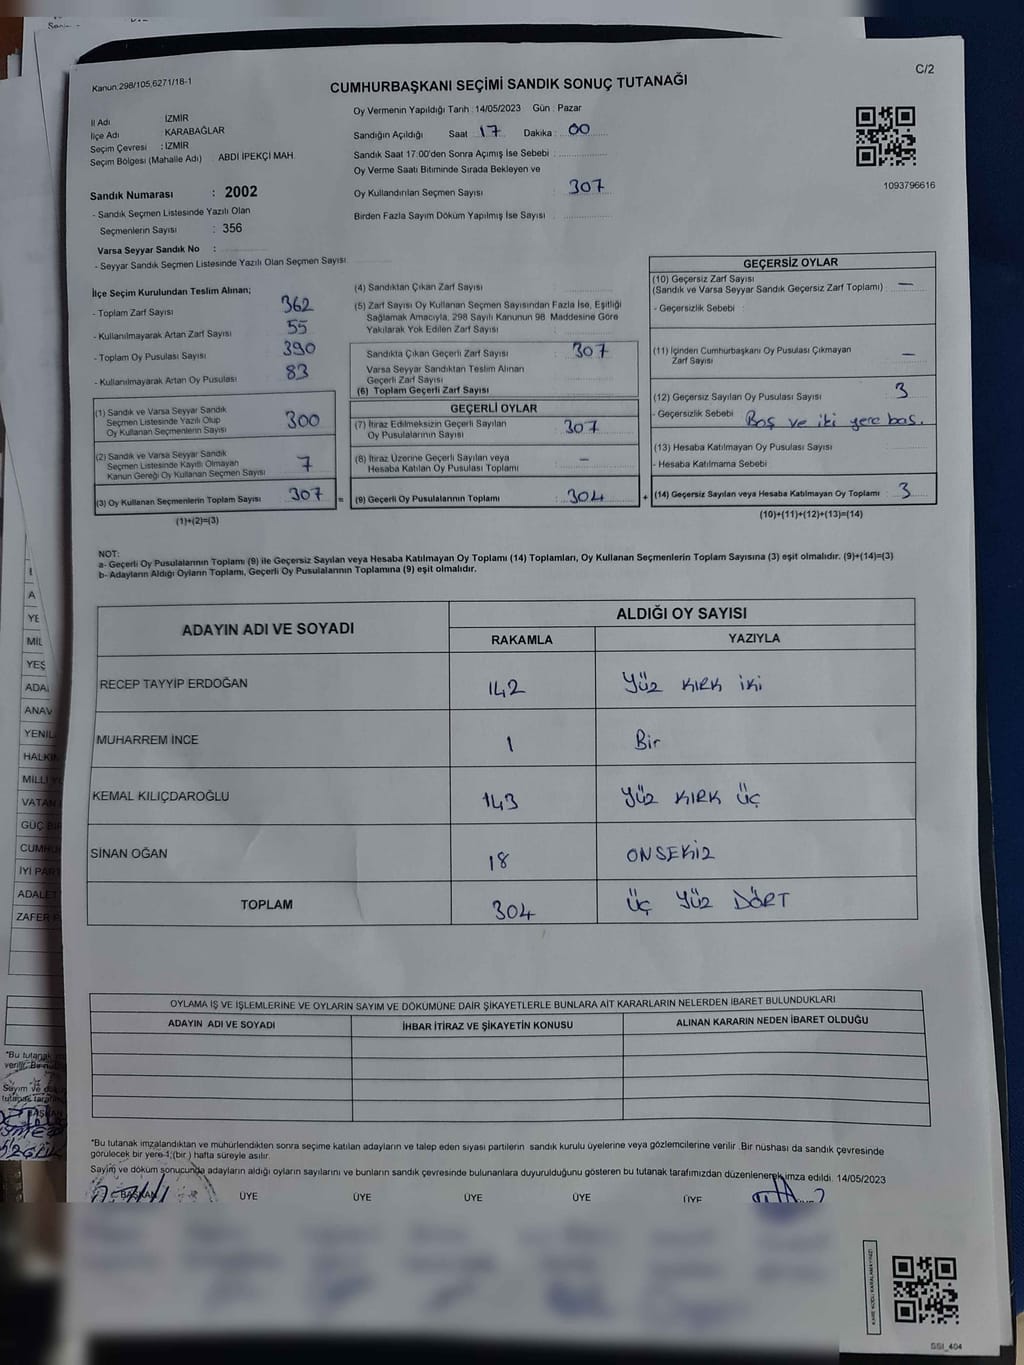 Kanun:298/105,6271/18-1
CUMHURBAŞKANI SEÇİMİ SANDIK SONUÇ TUTANAĞI
C/2
İl Adı İZMİR
İlçe Adı KARABAĞLAR
Seçim Çevresi : İZMİR
Seçim Bölgesi (Mahalle Adı) : ABDİ İPEKÇİ MAH.
Oy Vermenin Yapıldığı Tarih : 14/05/2023 Gün : Pazar
Sandığın Açıldığı Saat 17 Dakika : 00
Sandık Saat 17:00'den Sonra Açımış İse Sebebi :
Oy Verme Saati Bitiminde Sırada Bekleyen ve
Oy Kullandırılan Seçmen Sayısı : 307
Birden Fazla Sayım Döküm Yapılmış İse Sayısı
1093796616
Sandık Numarası : 2002
- Sandık Seçmen Listesinde Yazılı Olan
Seçmenlerin Sayısı : 356
Varsa Seyyar Sandık No :
- Seyyar Sandık Seçmen Listesinde Yazılı Olan Seçmen Sayısı
İlçe Seçim Kurulundan Teslim Alınan;
- Toplam Zarf Sayısı 362
- Kullanılmayarak Artan Zarf Sayısı 55
- Toplam Oy Pusulası Sayısı 390
- Kullanılmayarak Artan Oy Pusulası 83
(1) Sandık ve Varsa Seyyar Sandık
Seçmen Listesinde Yazılı Olup
Oy Kullanan Seçmenlerin Sayısı 300
(2) Sandık ve Varsa Seyyar Sandık
Seçmen Listesinde Kayıtlı Olmayan
Kanun Gereği Oy Kullanan Seçmen Sayısı 7
(3) Oy Kullanan Seçmenlerin Toplam Sayısı 307 =
(1)+(2)=(3)
(4) Sandıktan Çıkan Zarf Sayısı
(5) Zarf Sayısı Oy Kullanan Seçmen Sayısından Fazla İse, Eşitliği
Sağlamak Amacıyla, 298 Sayılı Kanunun 98. Maddesine Göre
Yakılarak Yok Edilen Zarf Sayısı
Sandıkta Çıkan Geçerli Zarf Sayısı : 307
Varsa Seyyar Sandıktan Teslim Alınan
Geçerli Zarf Sayısı
(6) Toplam Geçerli Zarf Sayısı
GEÇERLİ OYLAR
(7) İtiraz Edilmeksizin Geçerli Sayılan
Oy Pusulalarının Sayısı : 307
(8) İtiraz Üzerine Geçerli Sayılan veya
Hesaba Katılan Oy Pusulası Toplamı : –
(9) Geçerli Oy Pusulalarının Toplamı : 304 +
GEÇERSİZ OYLAR
(10) Geçersiz Zarf Sayısı
(Sandık ve Varsa Seyyar Sandık Geçersiz Zarf Toplamı) : —
- Geçersizlik Sebebi :
(11) İçinden Cumhurbaşkanı Oy Pusulası Çıkmayan
Zarf Sayısı : —
(12) Geçersiz Sayılan Oy Pusulası Sayısı : 3
- Geçersizlik Sebebi Boş ve iki yere bas.
(13) Hesaba Katılmayan Oy Pusulası Sayısı :
- Hesaba Katılmama Sebebi
(14) Geçersiz Sayılan veya Hesaba Katılmayan Oy Toplamı : 3
(10)+(11)+(12)+(13)=(14)
NOT:
a- Geçerli Oy Pusulalarının Toplamı (9) ile Geçersiz Sayılan veya Hesaba Katılmayan Oy Toplamı (14) Toplamları, Oy Kullanan Seçmenlerin Toplam Sayısına (3) eşit olmalıdır. (9)+(14)=(3)
b- Adayların Aldığı Oyların Toplamı, Geçerli Oy Pusulalarının Toplamına (9) eşit olmalıdır.
ADAYIN ADI VE SOYADI ALDIĞI OY SAYISI
RAKAMLA YAZIYLA
RECEP TAYYİP ERDOĞAN 142 Yüz KIRK iki
MUHARREM İNCE 1 Bir
KEMAL KILIÇDAROĞLU 143 Yüz KIRK ÜÇ
SİNAN OĞAN 18 ONSEKİZ
TOPLAM 304 ÜÇ YÜZ DÖRT
OYLAMA İŞ VE İŞLEMLERİNE VE OYLARIN SAYIM VE DÖKÜMÜNE DAİR ŞİKAYETLERLE BUNLARA AİT KARARLARIN NELERDEN İBARET BULUNDUKLARI
ADAYIN ADI VE SOYADI İHBAR İTİRAZ VE ŞİKAYETİN KONUSU ALINAN KARARIN NEDEN İBARET OLDUĞU
*Bu tutanak imzalandıktan ve mühürlendikten sonra seçime katılan adayların ve talep eden siyasi partilerin sandık kurulu üyelerine veya gözlemcilerine verilir. Bir nüshası da sandık çevresinde
görülecek bir yere 1 (bir) hafta süreyle asılır.
Sayım ve döküm sonucunda adayların aldığı oyların sayılarını ve bunların sandık çevresinde bulunanlara duyurulduğunu gösteren bu tutanak tarafımızdan düzenlenerek imza edildi. 14/05/2023
BAŞKAN ÜYE ÜYE ÜYE ÜYE ÜYE ÜYE
SSI_404
A
YE
MİL
YEŞ
ADA
ANAV
YENİL
HALKIN
MİLLİ
VATAN
GÜÇ Bİ
CUMHU
İYİ PAR
ADALET
ZAFER P
*Bu tutanak
Sayım ve
BAŞKAN